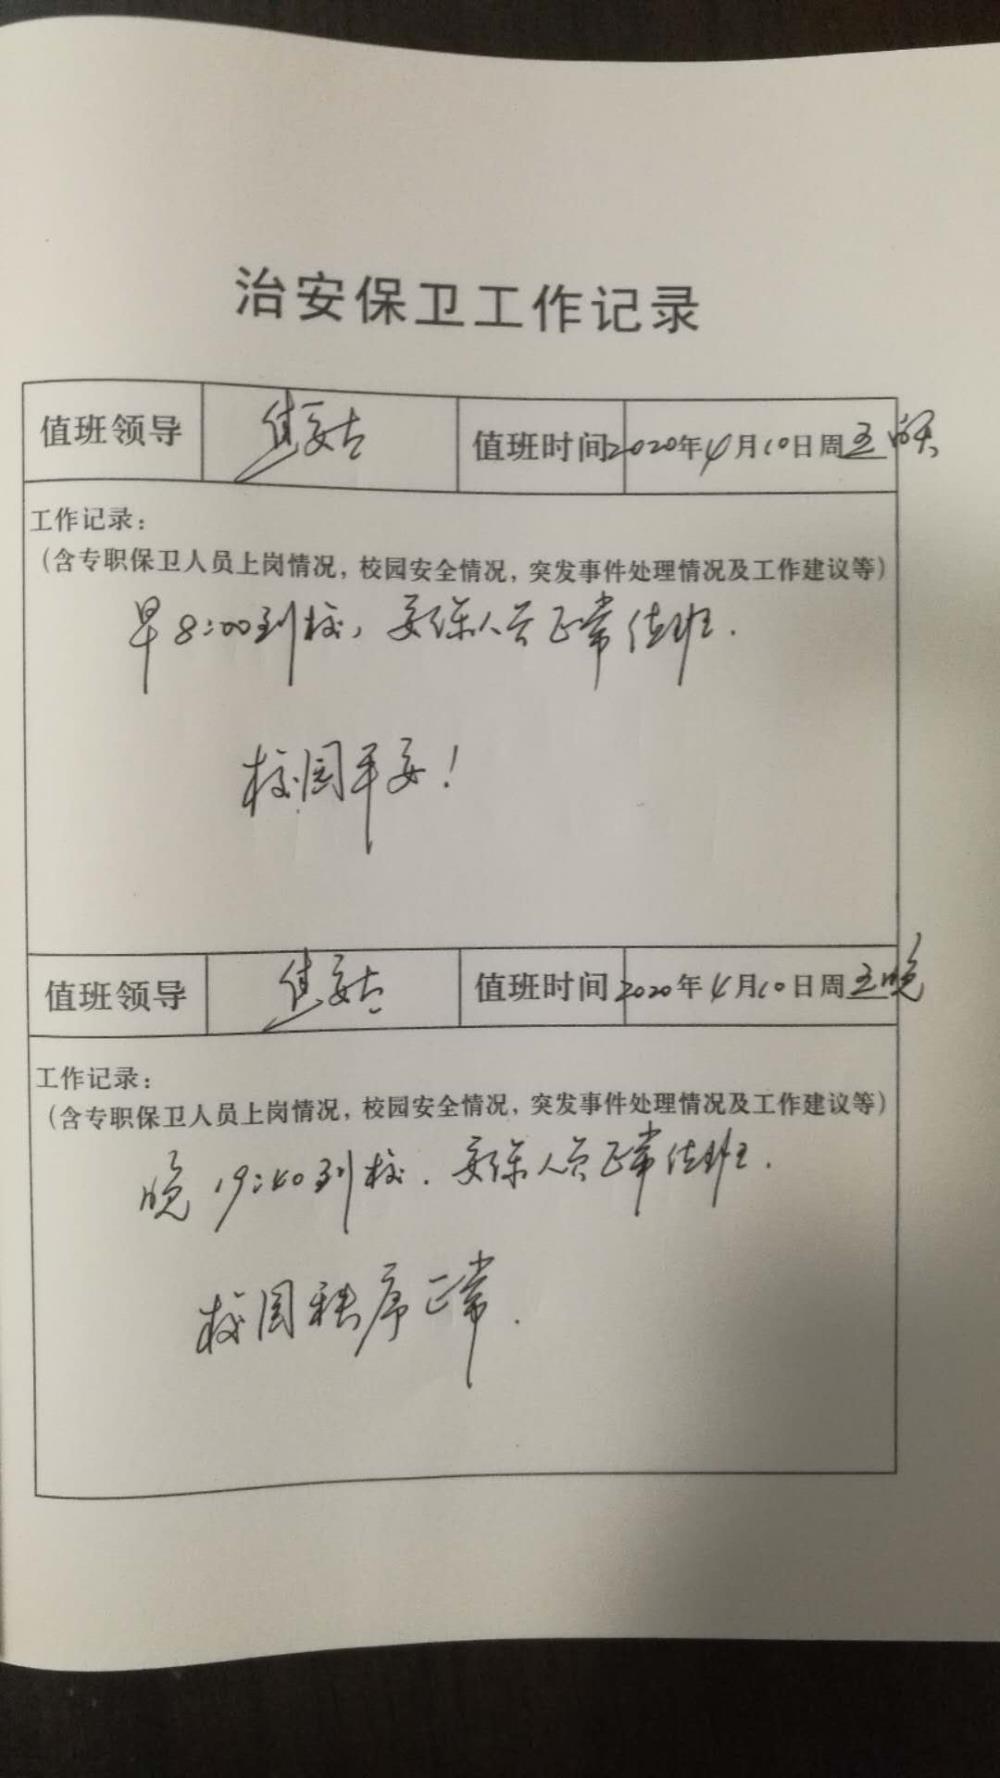 治安保卫工作记录
值班领导 值班时间 2020年4月10日周五
工作记录：
（含专职保卫人员上岗情况，校园安全情况，突发事件处理情况及工作建议等）
早8:00到校，安保人员正常值班.
校园平安！
值班领导 值班时间 2020年4月10日周五晚
工作记录：
（含专职保卫人员上岗情况，校园安全情况，突发事件处理情况及工作建议等）
晚19:40到校.安保人员正常值班.
校园秩序正常.